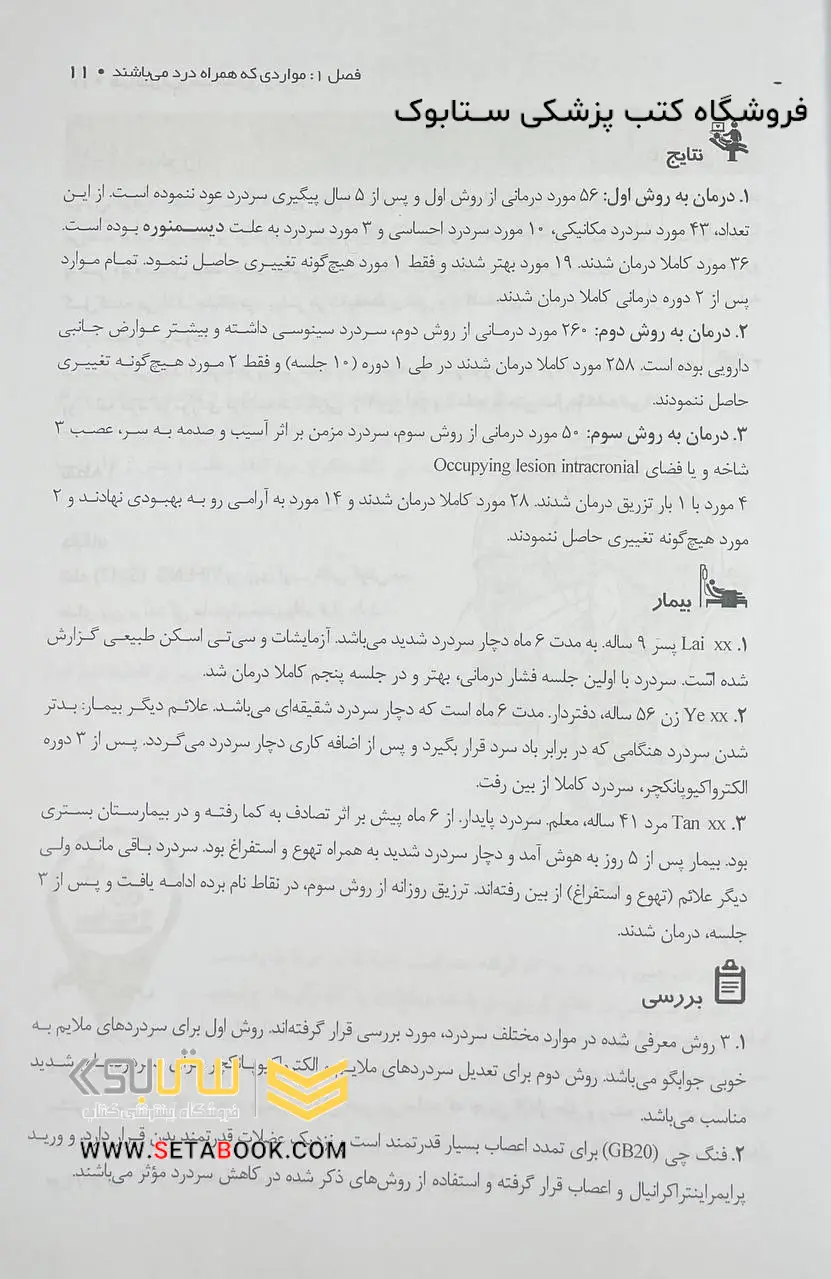 فصل ۱: مواردی که همراه درد می‌باشند • ۱۱
فروشگاه کتب پزشکی ستابوک
نتایج
۱. درمان به روش اول: ۵۶ مورد درمانی از روش اول و پس از ۵ سال پیگیری سردرد عود ننموده است. از این
تعداد، ۴۳ مورد سردرد مکانیکی، ۱۰ مورد سردرد احساسی و ۳ مورد سردرد به علت دیسمنوره بوده است.
۳۶ مورد کاملا درمان شدند. ۱۹ مورد بهتر شدند و فقط ۱ مورد هیچ‌گونه تغییری حاصل ننمود. تمام موارد
پس از ۲ دوره درمانی کاملا درمان شدند.
۲. درمان به روش دوم: ۲۶۰ مورد درمانی از روش دوم، سردرد سینوسی داشته و بیشتر عوارض جانبی
دارویی بوده است. ۲۵۸ مورد کاملا درمان شدند در طی ۱ دوره (۱۰ جلسه) و فقط ۲ مورد هیچ‌گونه تغییری
حاصل ننمودند.
۳. درمان به روش سوم: ۵۰ مورد درمانی از روش سوم، سردرد مزمن بر اثر آسیب و صدمه به سر، عصب ۳
شاخه و یا فضای Occupying lesion intracronial
۴ مورد با ۱ بار تزریق درمان شدند. ۲۸ مورد کاملا درمان شدند و ۱۴ مورد به آرامی رو به بهبودی نهادند و ۲
مورد هیچ‌گونه تغییری حاصل ننمودند.
بیمار
۱. Lai xx پسر ۹ ساله. به مدت ۶ ماه دچار سردرد شدید می‌باشد. آزمایشات و سی‌تی اسکن طبیعی گزارش
شده است. سردرد با اولین جلسه فشار درمانی، بهتر و در جلسه پنجم کاملا درمان شد.
۲. Ye xx زن ۵۶ ساله، دفتردار. مدت ۶ ماه است که دچار سردرد شقیقه‌ای می‌باشد. علائم دیگر بیمار: بدتر
شدن سردرد هنگامی که در برابر باد سرد قرار بگیرد و پس از اضافه کاری دچار سردرد می‌گردد. پس از ۳ دوره
الکترواکیوپانکچر، سردرد کاملا از بین رفت.
۳. Tan xx مرد ۴۱ ساله، معلم. سردرد پایدار. از ۶ ماه پیش بر اثر تصادف به کما رفته و در بیمارستان بستری
بود. بیمار پس از ۵ روز به هوش آمد و دچار سردرد شدید به همراه تهوع و استفراغ بود. سردرد باقی مانده ولی
دیگر علائم (تهوع و استفراغ) از بین رفته‌اند. ترزیق روزانه از روش سوم، در نقاط نام برده ادامه یافت و پس از ۳
جلسه، درمان شدند.
بررسی
۱. ۳ روش معرفی شده در موارد مختلف سردرد، مورد بررسی قرار گرفته‌اند. روش اول برای سردردهای ملایم به
خوبی جوابگو می‌باشد. روش دوم برای تعدیل سردردهای ملایم و الکترواکیوپانکچر برای سردردهای شدید
مناسب می‌باشد.
ستابوک
فروشگاه اینترنتی کتاب
WWW.SETABOOK.COM
۲. فنگ چی (GB20) برای تمدد اعصاب بسیار قدرتمند است نزدیک عضلات قدرتمند بدن قرار دارد. و ورید
پرایمراینتراکرانیال و اعصاب قرار گرفته و استفاده از روش‌های ذکر شده در کاهش سردرد مؤثر می‌باشند.